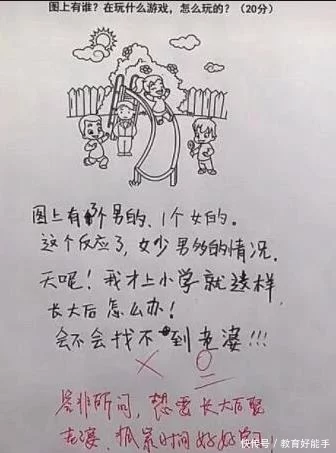 图上有谁？在玩什么游戏，怎么玩的？（20分）
图上有个男的、1个女的。
这个反应了,女少男多的情况,
天呢！我才上小学就这样,
长大后怎么办！
会不会找不到老婆!!!
0
答非所问，想要长大后娶
老婆，抓紧时间好好学习
快传号 / 教育好能手